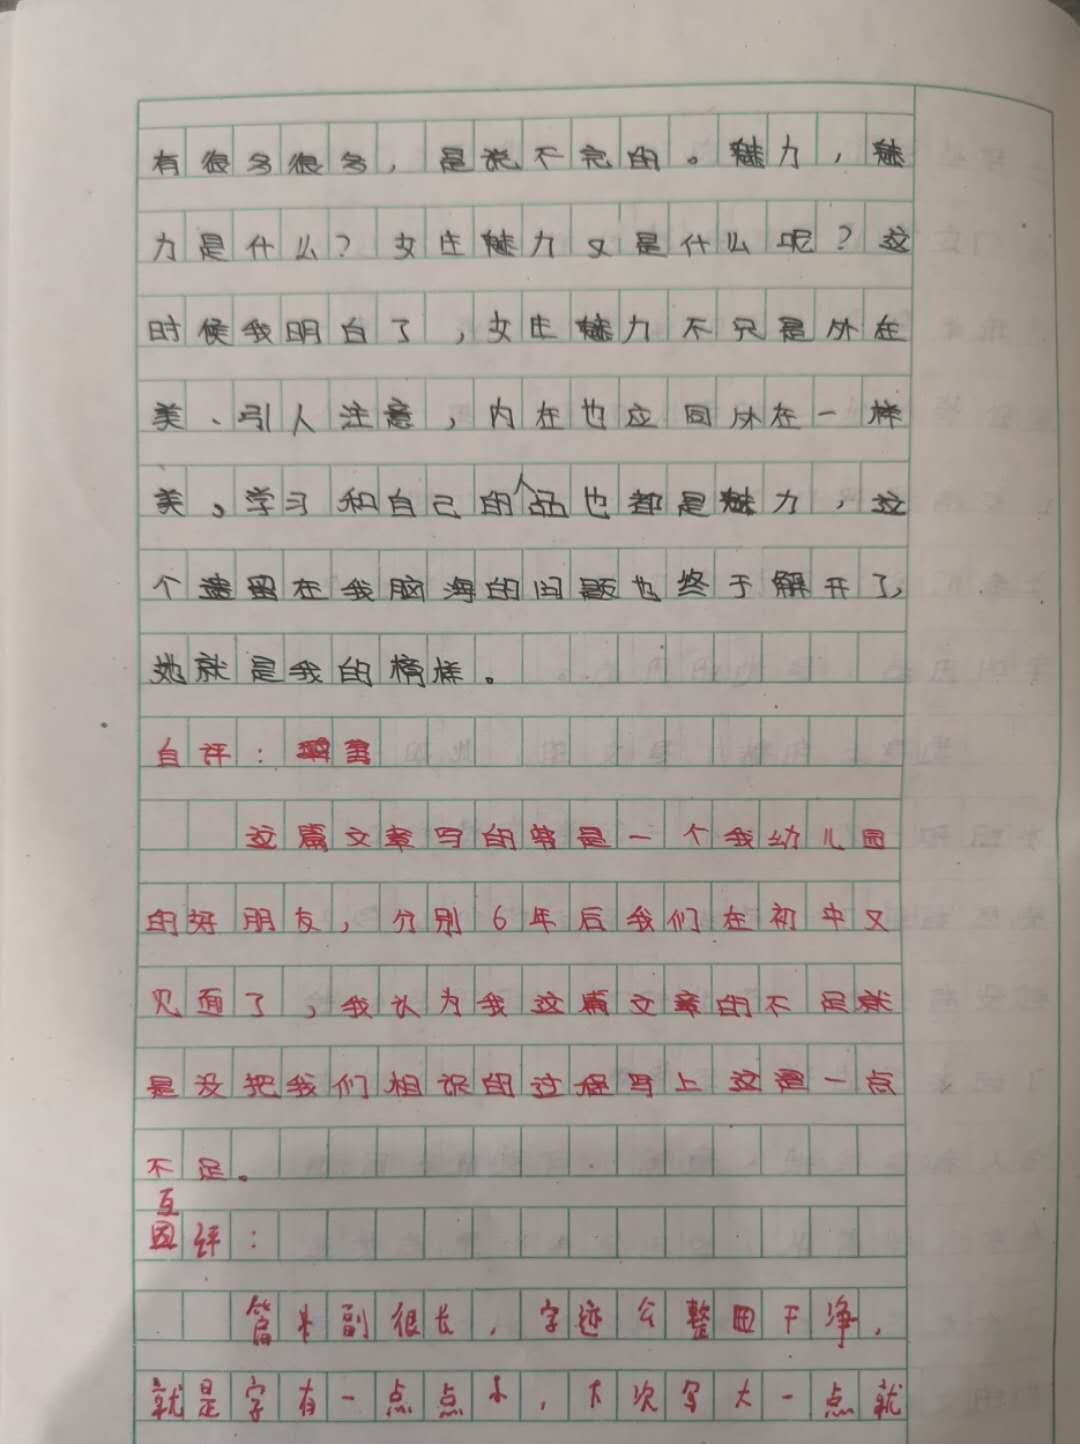 有很多很多，是说不完的。魅力，魅
力是什么？女生魅力又是什么呢？这
时候我明白了，女生魅力不只是外在
美、引人注意，内在也应同外在一样
美。学习和自己的人品也都是魅力，这
个遗留在我脑海的问题也终于解开了，
她就是我的榜样。
自评：
这篇文章写的是一个我幼儿园
的好朋友，分别6年后我们在初中又
见面了，我认为我这篇文章的不足就
是没把我们相识的过程写上这是一点
不足。
互评：
篇副很长，字迹公整田干净，
就是字有一点点小，下次写大一点就